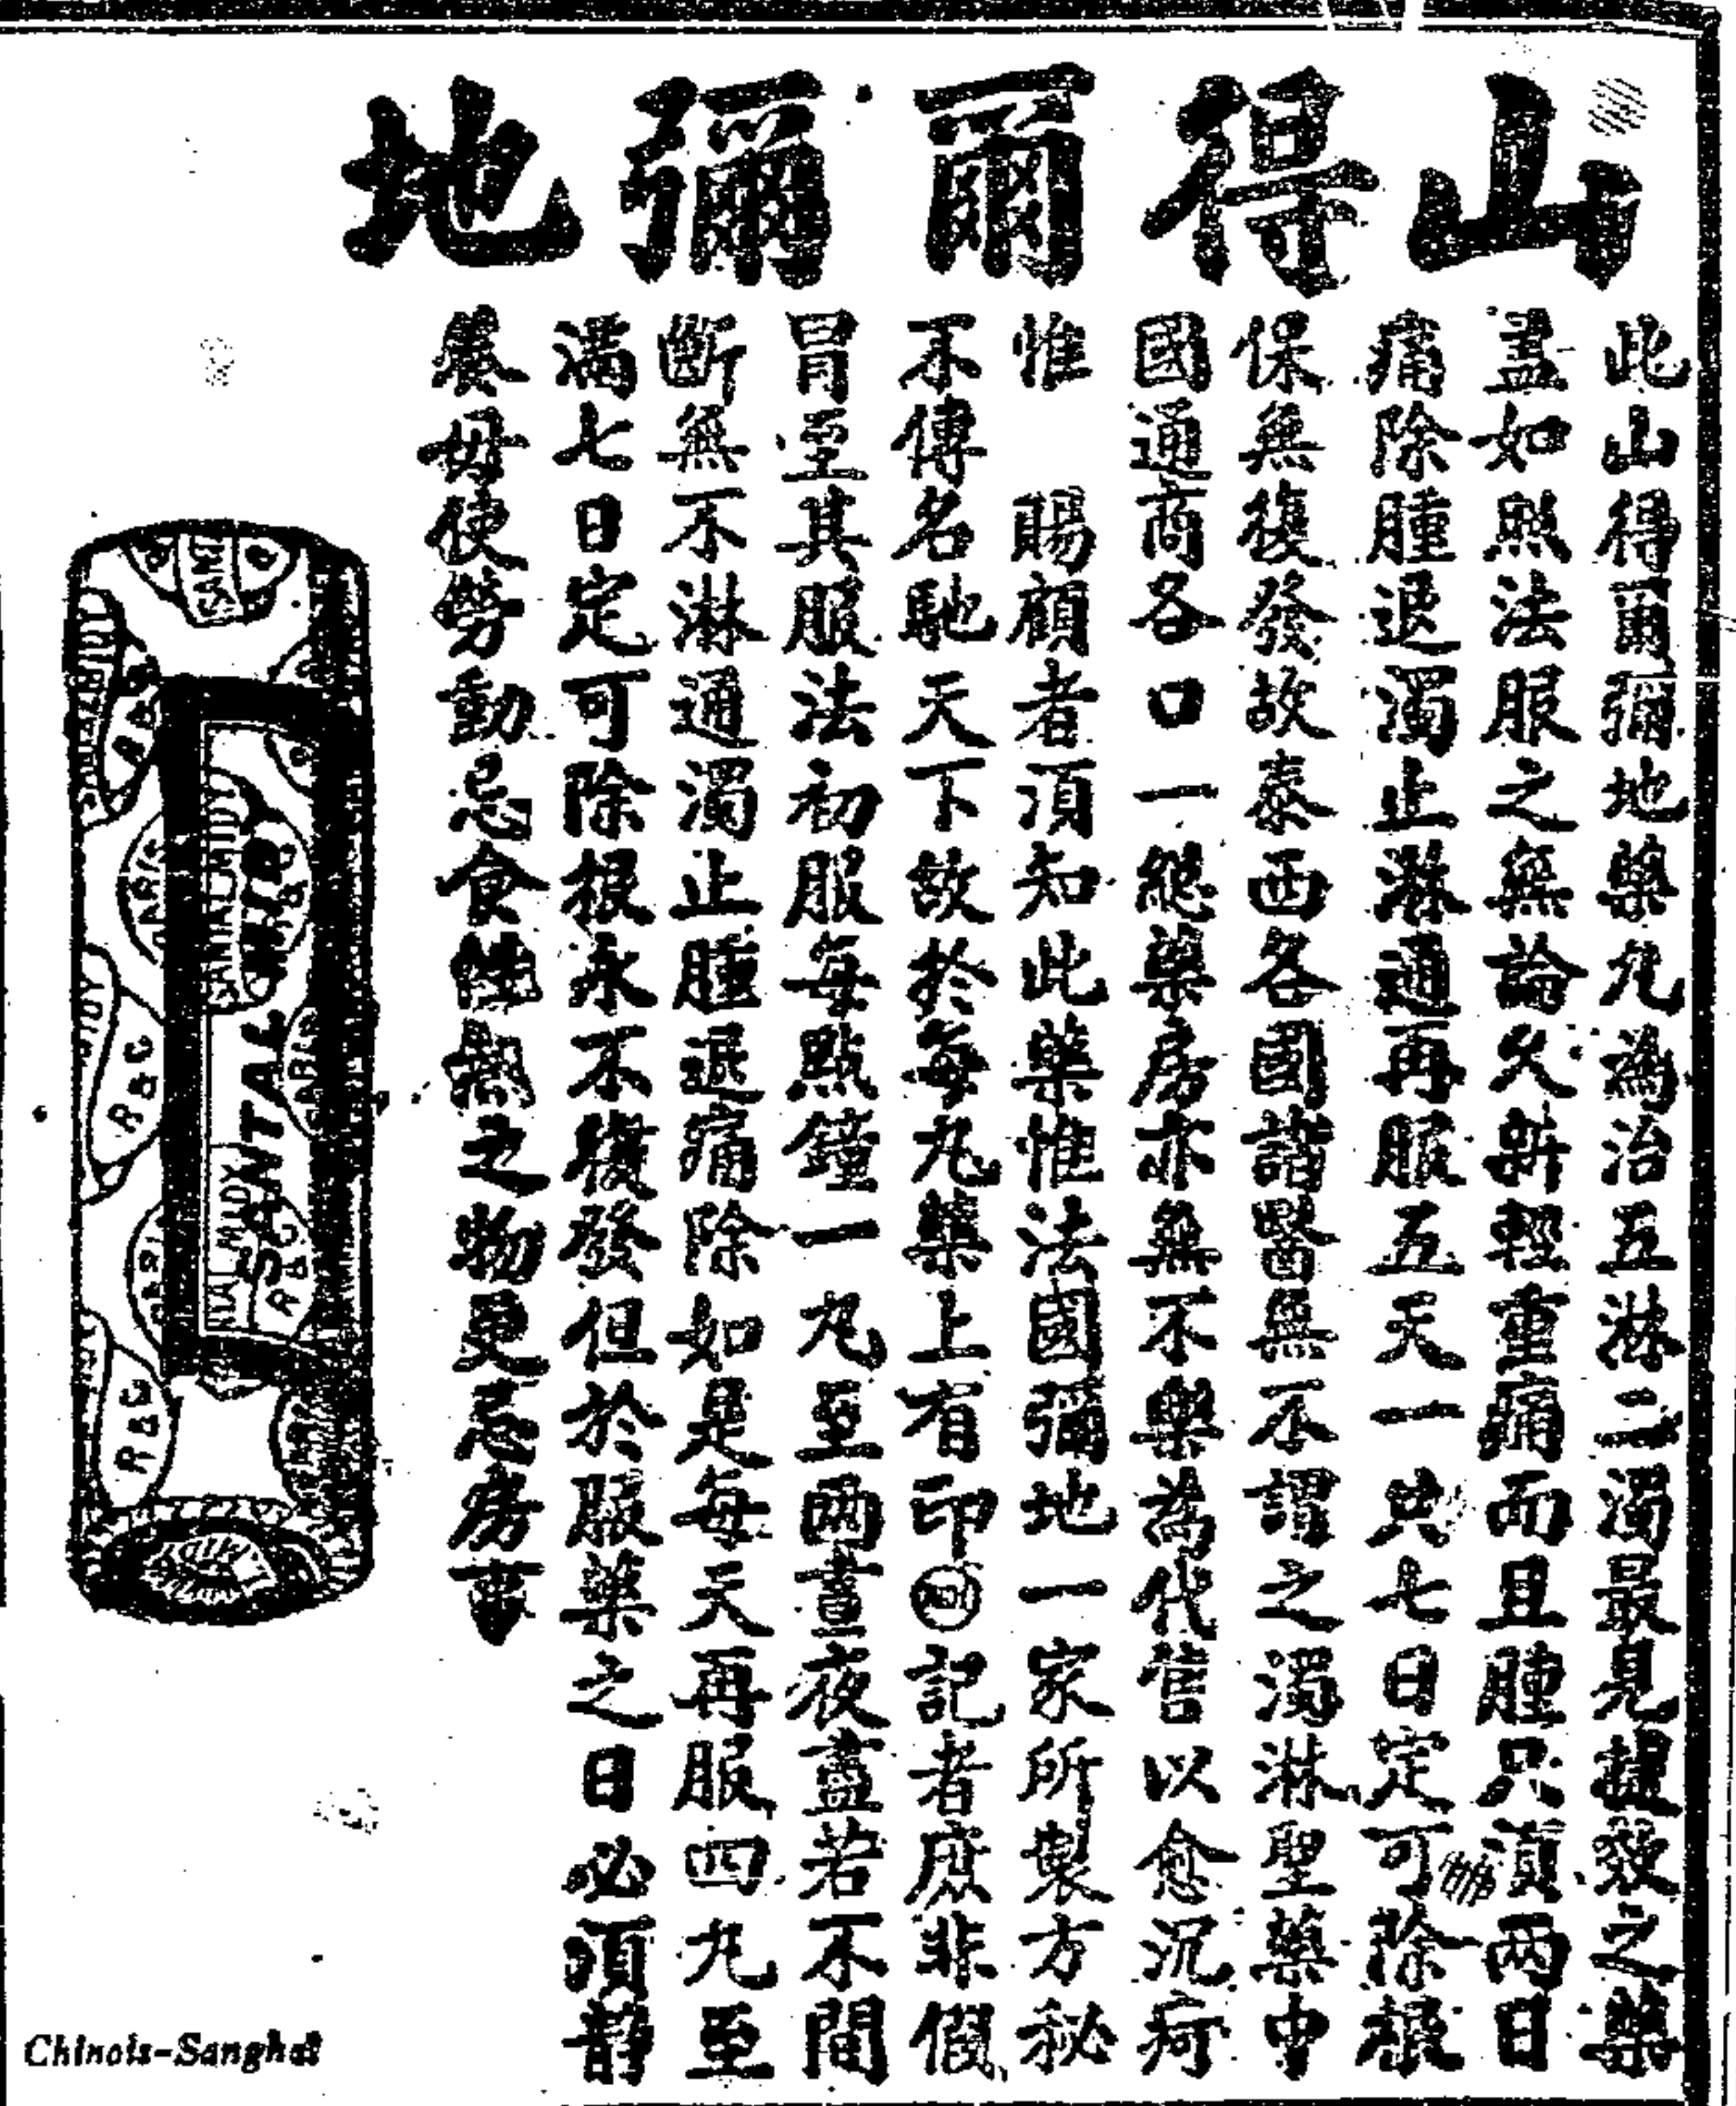 山得爾彌地
此山得爾彌地藥丸為治五淋二濁最見捷效之藥
蓋如照法服之無論久新輕重痛而且腫只須兩日
痛除腫退濁止淋通再服五天一共七日定可除根
保無復發故泰西各國諸醫無不謂之濁淋聖藥中
國通商各口一總藥房亦無不樂為代售以愈沉疴
惟 賜顧者須知此藥惟法國彌地一家所製方秘
不傳名馳天下故於每丸藥上有印記者庶非假
冒至其服法初服每點鐘一丸至兩晝夜盡若不間
斷無不淋通濁止腫退痛除如是每天再服四丸至
滿七日定可除根永不復發但於服藥之日必須靜
養毋使勞動忌食性熱之物更忌房事
SANTAL
SANTAL MIDY
R & C
R & C
R & C
PARIS
Chinois-Sanghaï